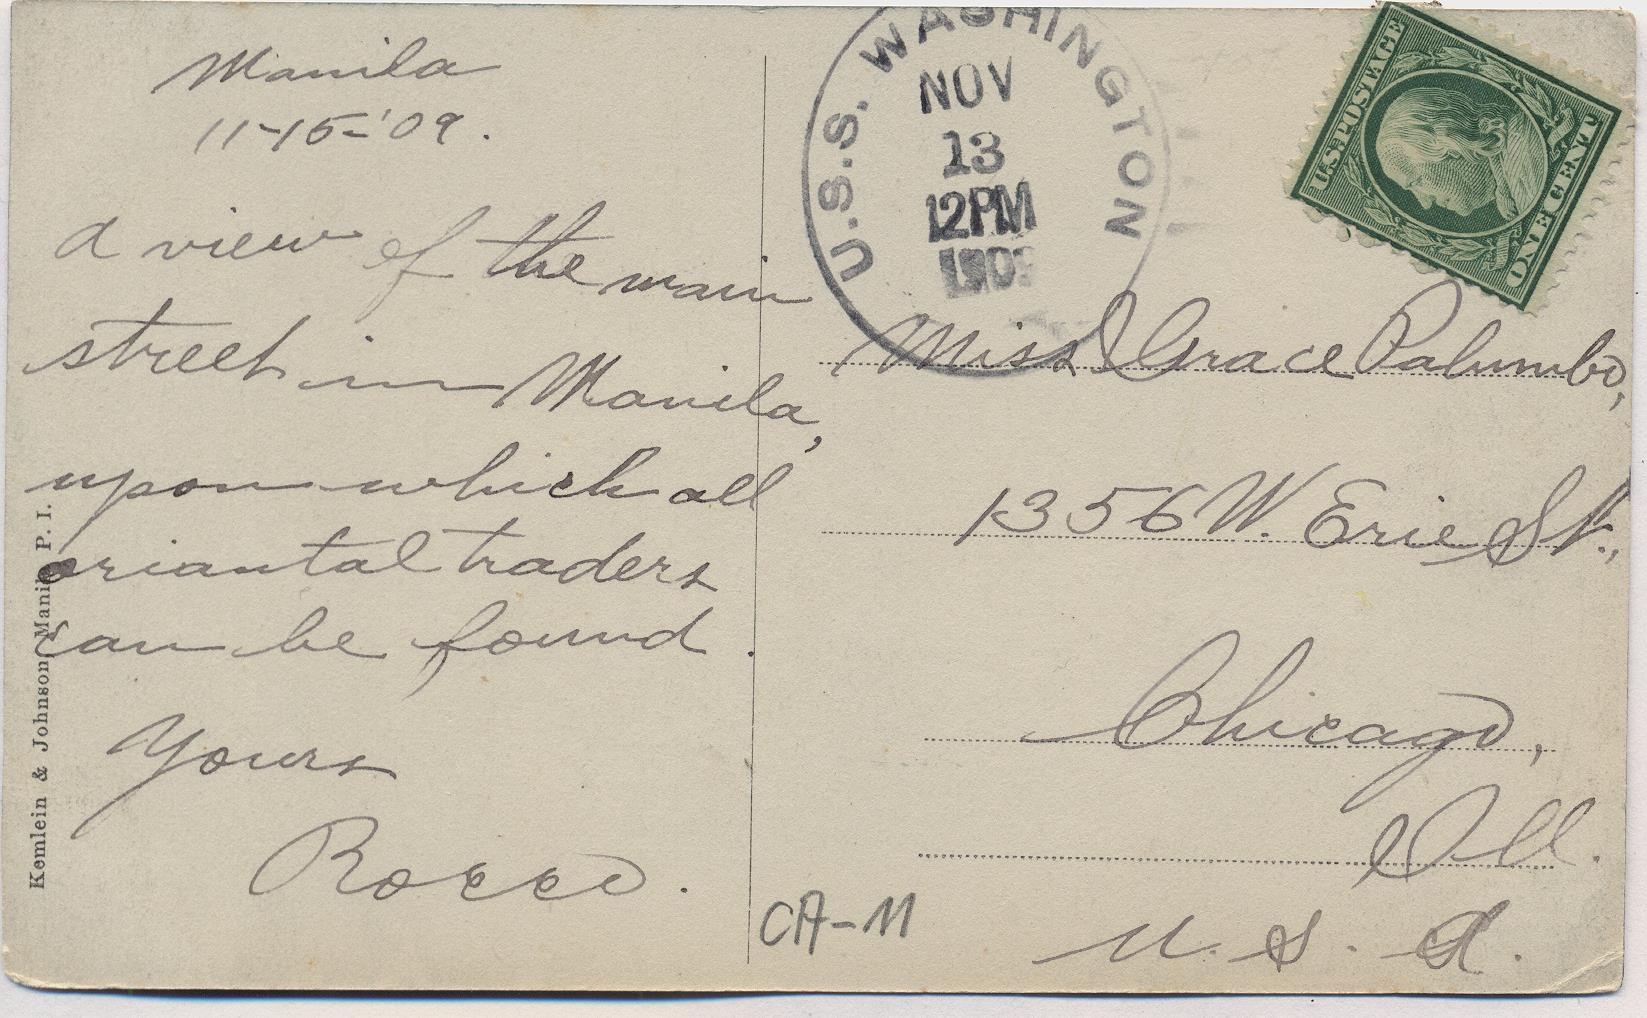 Manila
11-15-'09.
A view of the main
street in Manila,
upon which all
oriantal traders
can be found.
Yours
Rocco.
Kemlein & Johnson, Manila P. I.
U.S.S. WASHINGTON
NOV
13
12PM
1909
U.S. POSTAGE
ONE CENT
Miss Grace Palumbo,
1356 W. Erie St.,
Chicago,
Ill.
U. S. A.
CA-11